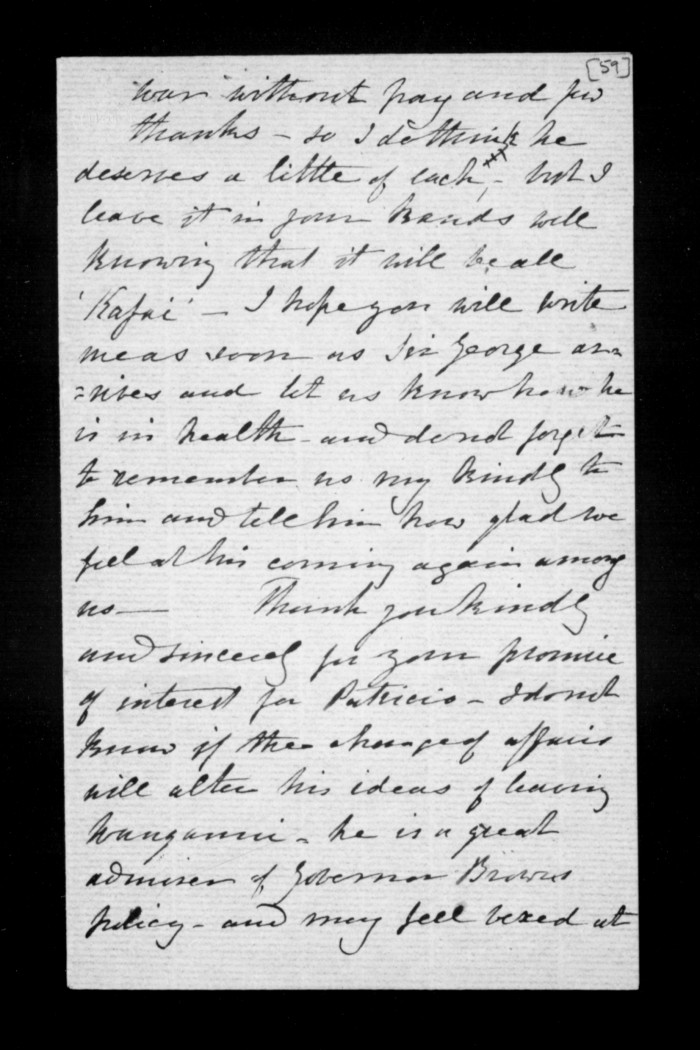 [59]
War without pay and few
thanks - so I do think he
deserves a little of each, - but I
leave it in your hands well
knowing that it will be all
'Kapai' - I hope you will write
me as soon as Sir George ar=
=rives and let us know how he
is in health - and do not forget
to remember us my kindly to
him and tell him how glad we
feel at his coming again among
us — Thank you kindly
and sincerely for your promise
of interest for Patricio - I do not
know if the change of affairs
will alter his ideas of leaving
Wanganui - he is a great
admirer of Governor Browns
policy - and may feel vexed at